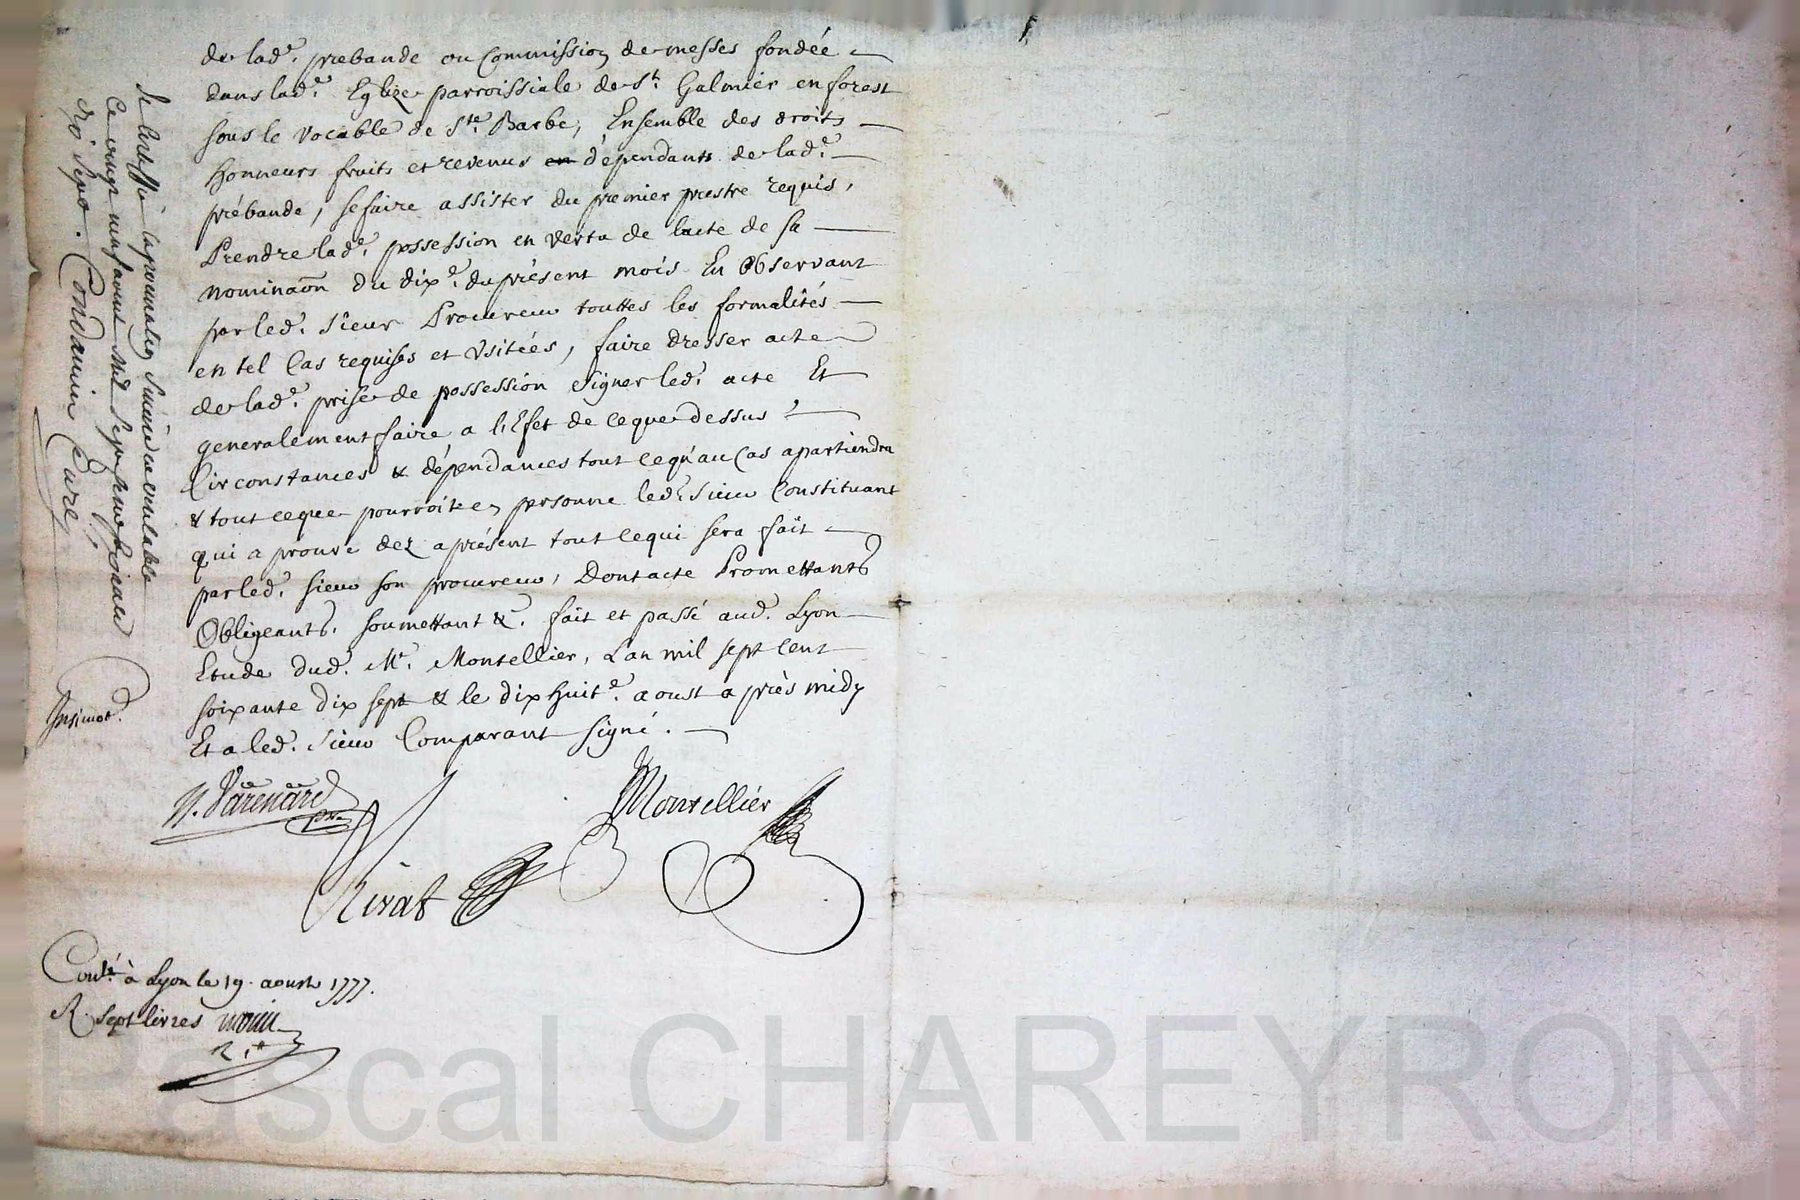 de lad.e prebande ou Commission de messes fondée
dans lad.e Eglize parroissiale de St. Galmier en forest
sous le vocable de Ste. Barbe, Ensemble des droits
honneurs fruits et revenus dépendants de lad.e
prébande, se faire assister du premier prestre requis,
Prendre lad.e possession en vertu de lacte de sa
nominaon du dix.e du présent mois En Observant
par led. sieur Procureur touttes les formalités
en tel Cas requises et usitées, faire dresser acte
de lad.e prise de possession signer led. acte Et
generalement faire a l'Efet de ce que dessus
Circonstances & dépendances tout ce qu'au Cas apartiendra
& tout ce que pourroit en personne led. sieur Constituant
qui aprouve dez aprésent tout ce qui sera fait
par led. sieur son procureur, Dont acte Promettants
Obligeants, soumettant &. fait et passé aud. Lyon
Etude dud. Me. Montellier, Lan mil sept Cent
soixante dix sept & le dix huit.e aoust après midy
Et a led. sieur Comparant signé.
N. Varenard
ptre
Montellier
Rivat
Contlé à Lyon le 19. aoust 1777.
R. sept livres
la procuration
Ce onze
Condamin Curé
Insinué
Pascal CHAREYRON